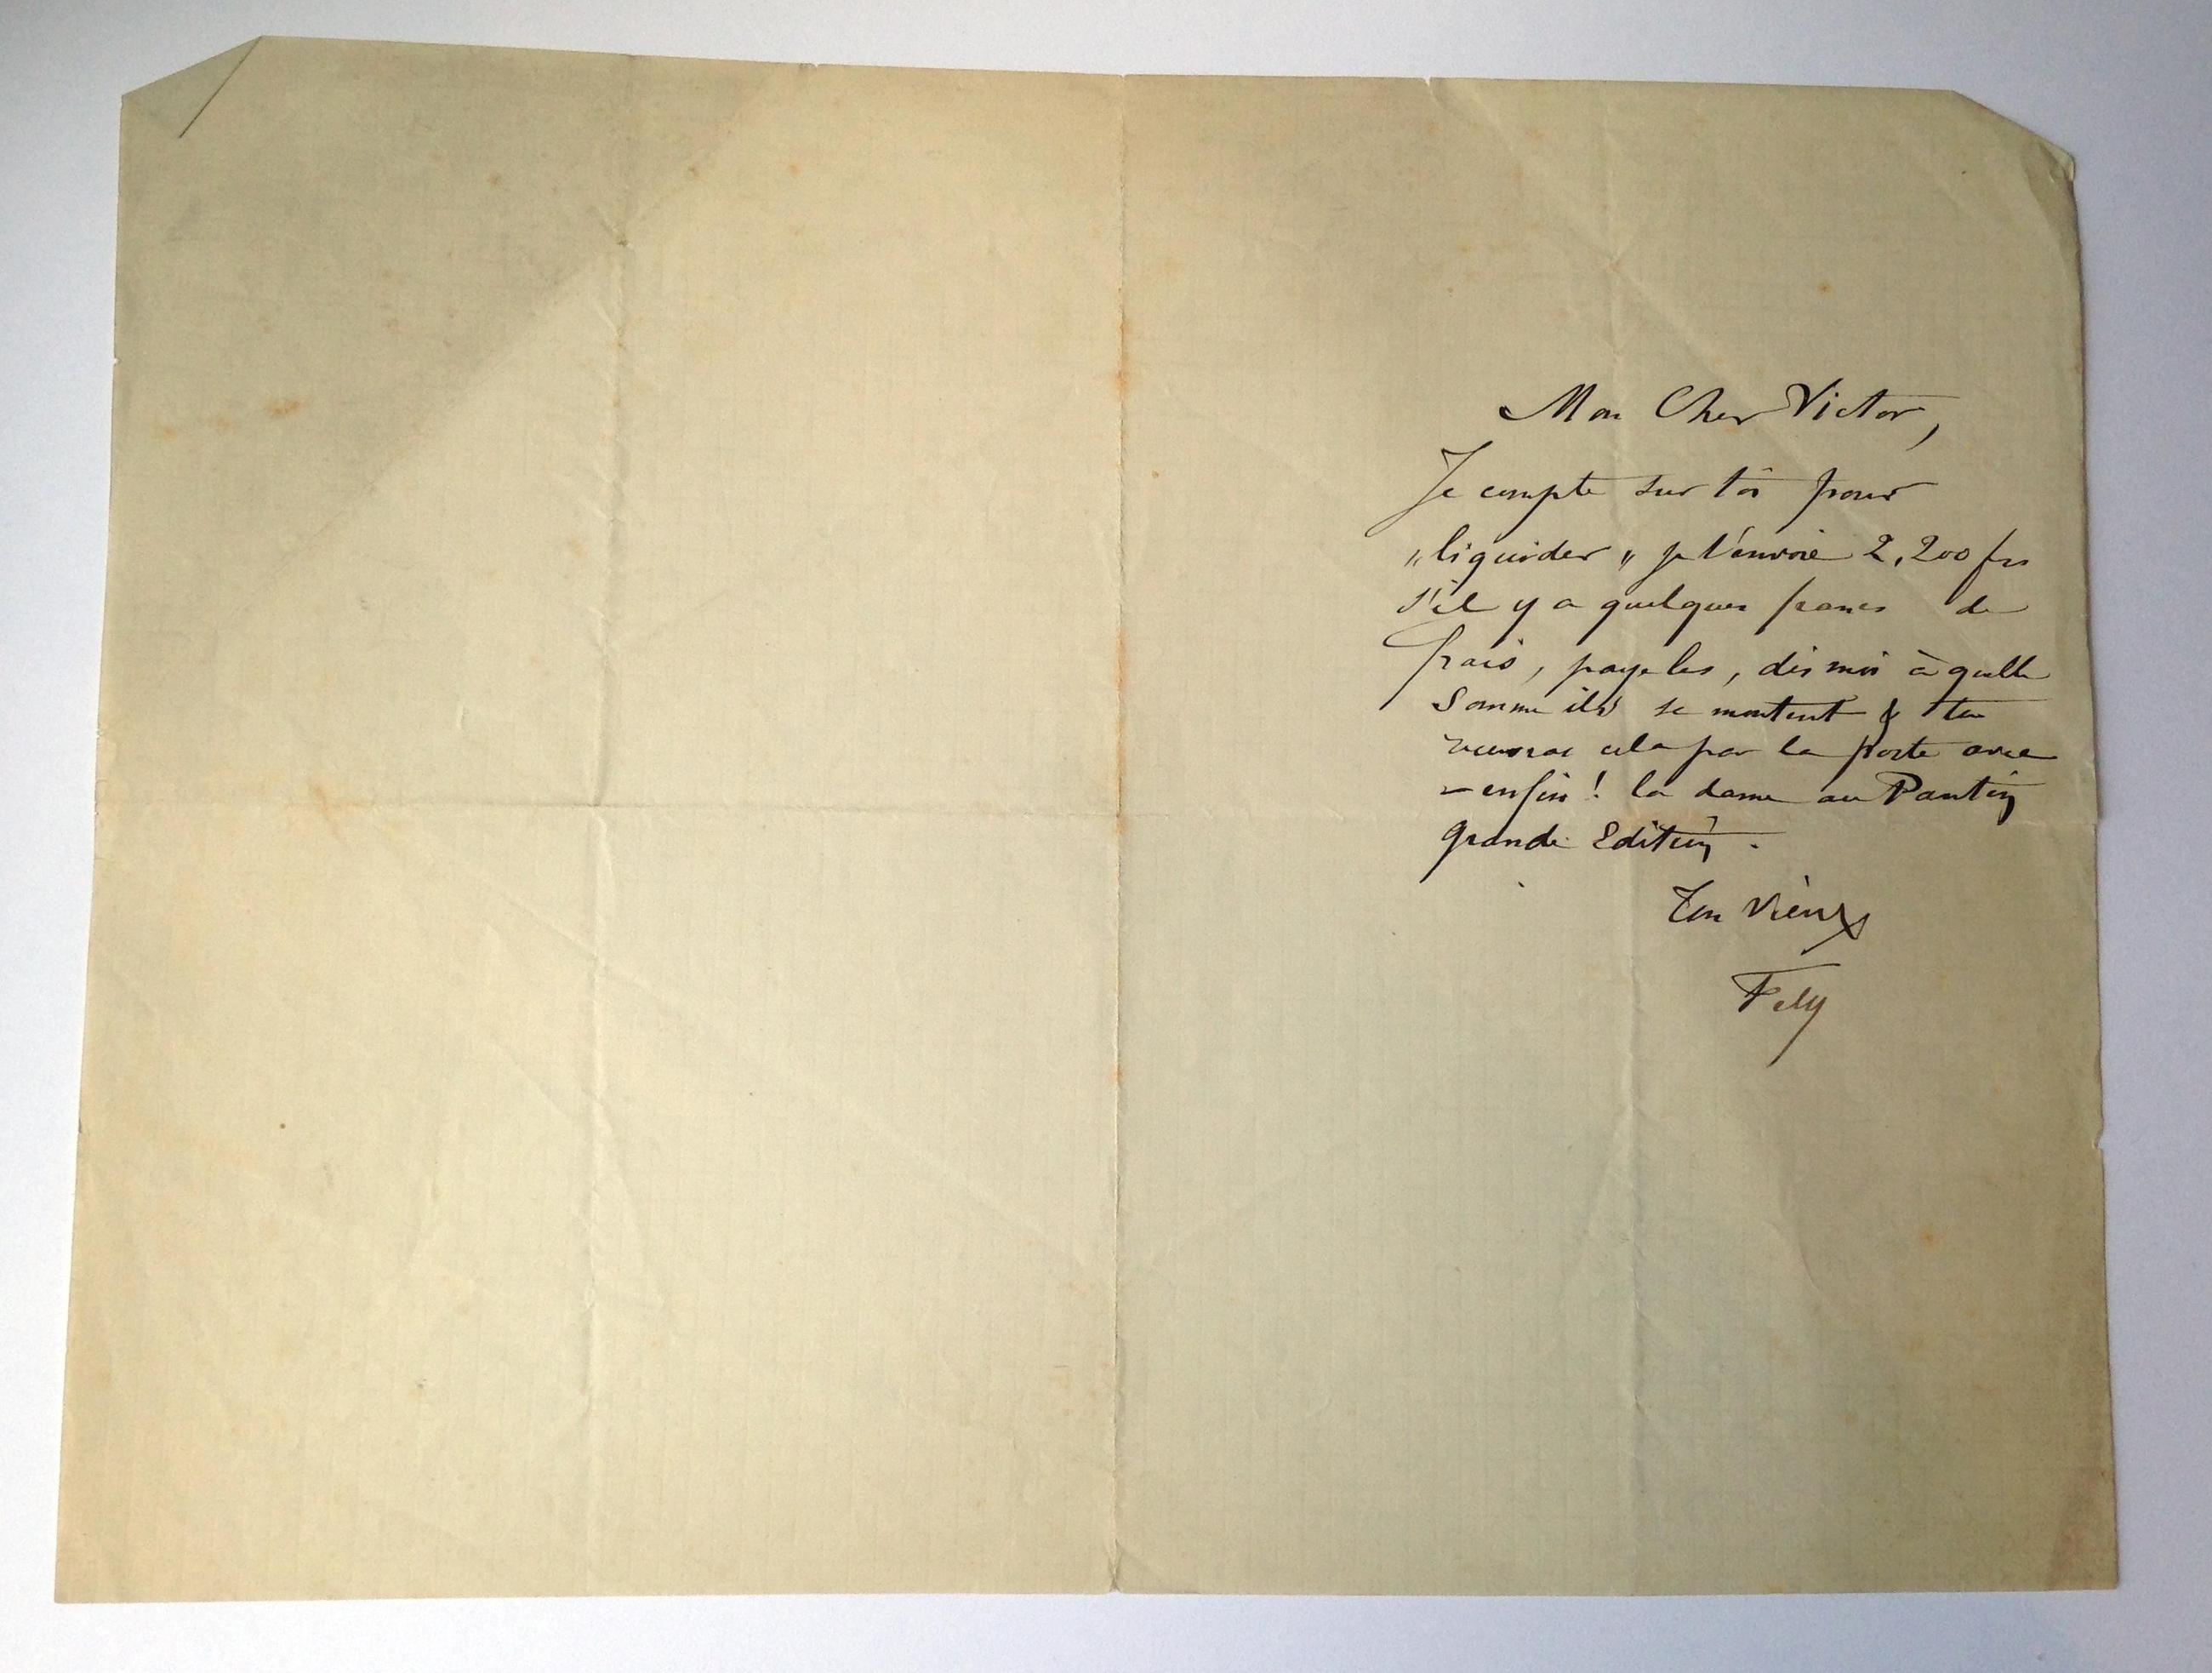 Mon Cher Victor,
Je compte sur toi pour
„liquider„ je t'envoie 2,200 frs
s'il y a quelques francs de
frais, paye les, dis moi à quelle
somme ils se montent & tu
recevras cela par la poste avec
– enfin ! la dame au Pantin
grande Edition.
Ton Vieux
Fély